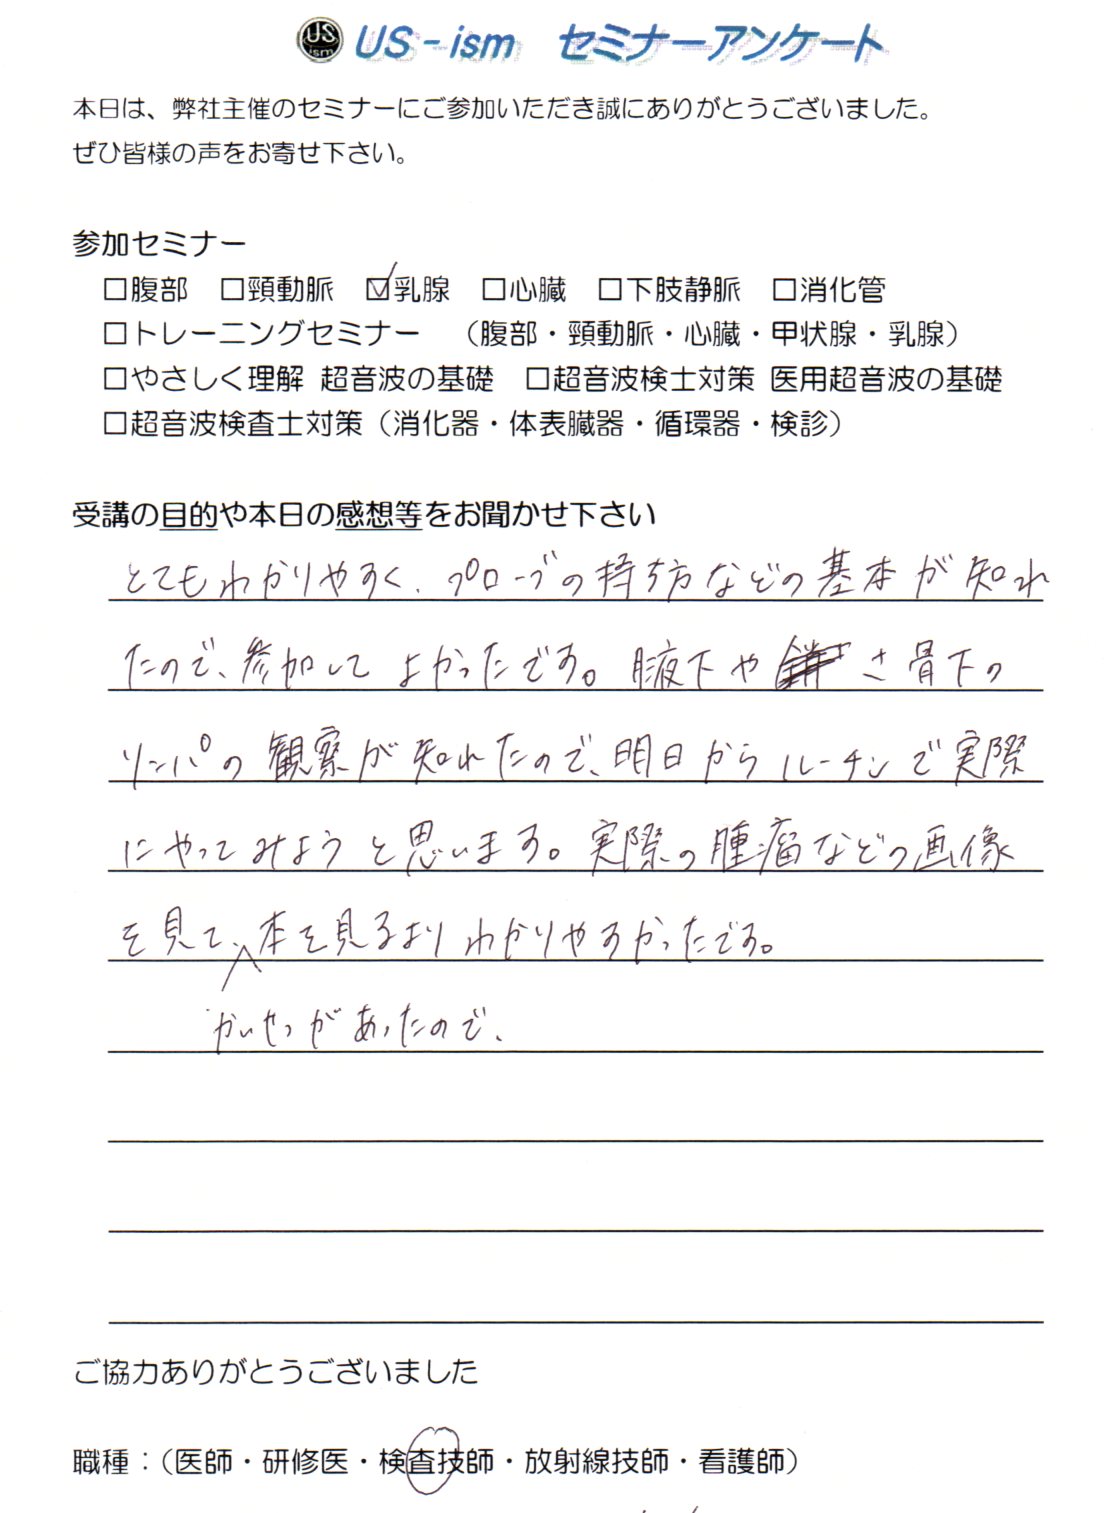 US ism US-ism セミナーアンケート
本日は、弊社主催のセミナーにご参加いただき誠にありがとうございました。
ぜひ皆様の声をお寄せ下さい。
参加セミナー
□腹部 □頸動脈 ☑乳腺 □心臓 □下肢静脈 □消化管
□トレーニングセミナー （腹部・頸動脈・心臓・甲状腺・乳腺）
□やさしく理解 超音波の基礎 □超音波検士対策 医用超音波の基礎
□超音波検査士対策（消化器・体表臓器・循環器・検診）
受講の目的や本日の感想等をお聞かせ下さい
とてもわかりやすく、プローブの持ち方などの基本が知れ
たので、参加してよかったです。腋下や さ骨下の
リンパの観察が知れたので、明日からルーチンで実際
にやってみようと思います。実際の腫瘤などの画像
を見て、本を見るよりわかりやすかったです。
かいせつがあったので、
ご協力ありがとうございました
職種：（医師・研修医・検査技師・放射線技師・看護師）